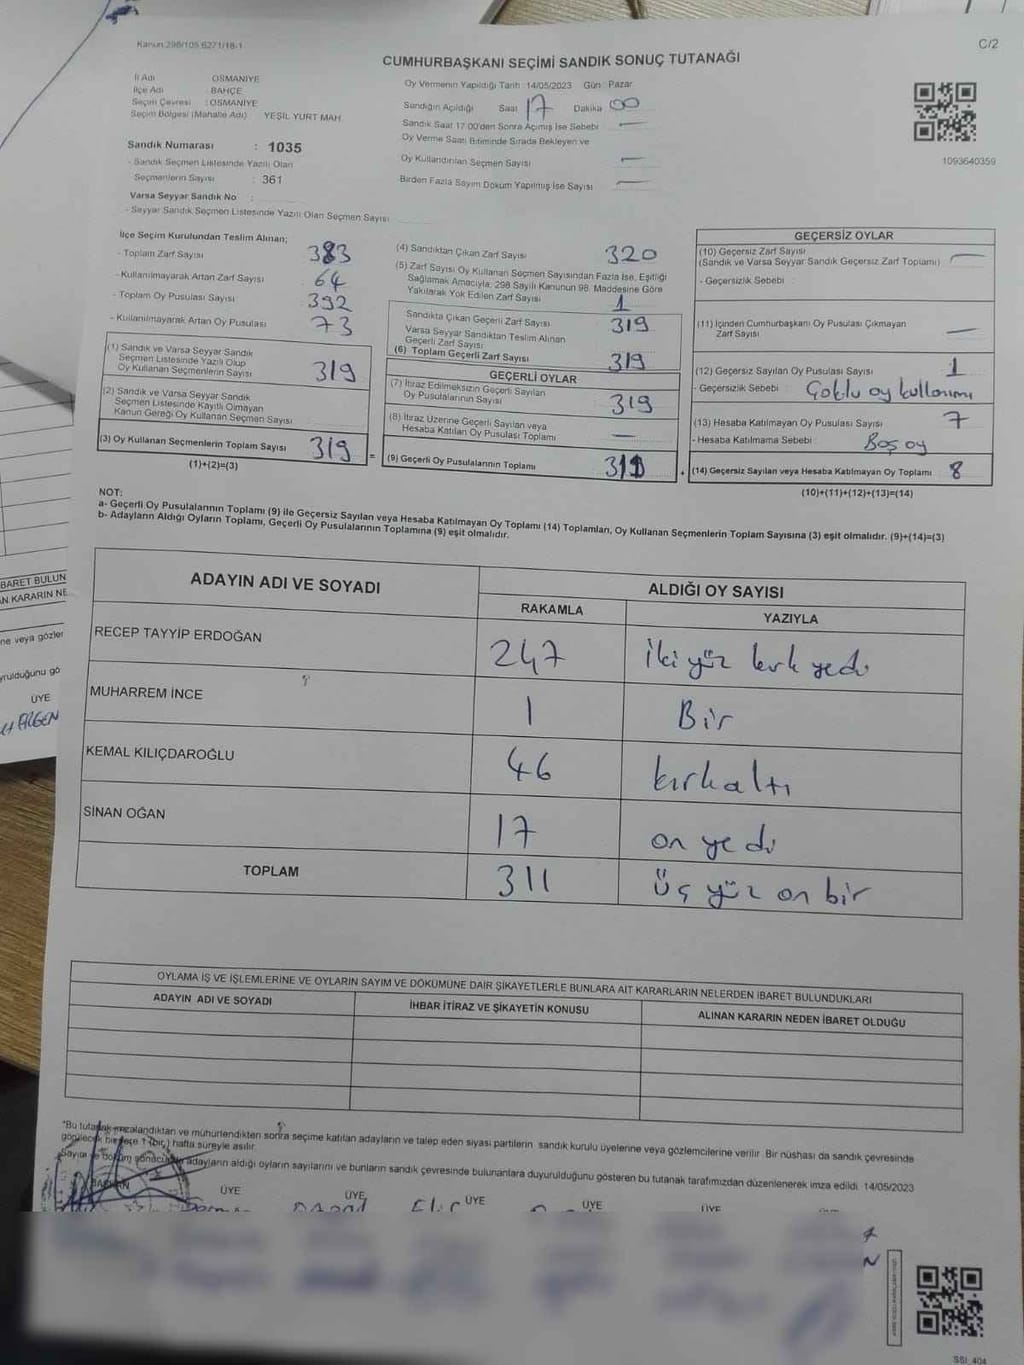 Kanun:298/105.6271/18-1
C/2
CUMHURBAŞKANI SEÇİMİ SANDIK SONUÇ TUTANAĞI
İl Adı OSMANİYE
İlçe Adı : BAHÇE
Seçim Çevresi : OSMANİYE
Seçim Bölgesi (Mahalle Adı) YEŞİL YURT MAH.
Sandık Numarası : 1035
- Sandık Seçmen Listesinde Yazılı Olan
Seçmenlerin Sayısı : 361
Varsa Seyyar Sandık No :
- Seyyar Sandık Seçmen Listesinde Yazılı Olan Seçmen Sayısı
Oy Vermenin Yapıldığı Tarih : 14/05/2023 Gün : Pazar
Sandığın Açıldığı Saat 17 Dakika 00
Sandık Saat 17:00'den Sonra Açılmış İse Sebebi —
Oy Verme Saati Bitiminde Sırada Bekleyen ve
Oy Kullandırılan Seçmen Sayısı —
Birden Fazla Sayım Döküm Yapılmış İse Sayısı —
1093640359
İlçe Seçim Kurulundan Teslim Alınan;
- Toplam Zarf Sayısı 383
- Kullanılmayarak Artan Zarf Sayısı 64
- Toplam Oy Pusulası Sayısı 392
- Kullanılmayarak Artan Oy Pusulası 73
(1) Sandık ve Varsa Seyyar Sandık
Seçmen Listesinde Yazılı Olup
Oy Kullanan Seçmenlerin Sayısı 319
(2) Sandık ve Varsa Seyyar Sandık
Seçmen Listesinde Kayıtlı Olmayan
Kanun Gereği Oy Kullanan Seçmen Sayısı
(3) Oy Kullanan Seçmenlerin Toplam Sayısı 319
(1)+(2)=(3)
(4) Sandıktan Çıkan Zarf Sayısı 320
(5) Zarf Sayısı Oy Kullanan Seçmen Sayısından Fazla İse, Eşitliği
Sağlamak Amacıyla; 298 Sayılı Kanunun 98. Maddesine Göre
Yakılarak Yok Edilen Zarf Sayısı 1
Sandıkta Çıkan Geçerli Zarf Sayısı 319
Varsa Seyyar Sandıktan Teslim Alınan
Geçerli Zarf Sayısı
(6) Toplam Geçerli Zarf Sayısı 319
GEÇERLİ OYLAR
(7) İtiraz Edilmeksizin Geçerli Sayılan
Oy Pusulalarının Sayısı 319
(8) İtiraz Üzerine Geçerli Sayılan veya
Hesaba Katılan Oy Pusulası Toplamı —
=
(9) Geçerli Oy Pusulalarının Toplamı
GEÇERSİZ OYLAR
(10) Geçersiz Zarf Sayısı
(Sandık ve Varsa Seyyar Sandık Geçersiz Zarf Toplamı) —
- Geçersizlik Sebebi :
(11) İçinden Cumhurbaşkanı Oy Pusulası Çıkmayan
Zarf Sayısı —
(12) Geçersiz Sayılan Oy Pusulası Sayısı 1
- Geçersizlik Sebebi : Çoklu oy kullanımı
(13) Hesaba Katılmayan Oy Pusulası Sayısı 7
- Hesaba Katılmama Sebebi : Boş oy
+
(14) Geçersiz Sayılan veya Hesaba Katılmayan Oy Toplamı 8
(10)+(11)+(12)+(13)=(14)
NOT:
a- Geçerli Oy Pusulalarının Toplamı (9) ile Geçersiz Sayılan veya Hesaba Katılmayan Oy Toplamı (14) Toplamları, Oy Kullanan Seçmenlerin Toplam Sayısına (3) eşit olmalıdır. (9)+(14)=(3)
b- Adayların Aldığı Oyların Toplamı, Geçerli Oy Pusulalarının Toplamına (9) eşit olmalıdır.
ADAYIN ADI VE SOYADI
ALDIĞI OY SAYISI
RAKAMLA YAZIYLA
RECEP TAYYİP ERDOĞAN 247 İki yüz kırk yedi
MUHARREM İNCE 1 Bir
KEMAL KILIÇDAROĞLU 46 kırkaltı
SİNAN OĞAN 17 on yedi
TOPLAM 311 üç yüz on bir
OYLAMA İŞ VE İŞLEMLERİNE VE OYLARIN SAYIM VE DÖKÜMÜNE DAİR ŞİKAYETLERLE BUNLARA AİT KARARLARIN NELERDEN İBARET BULUNDUKLARI
ADAYIN ADI VE SOYADI İHBAR İTİRAZ VE ŞİKAYETİN KONUSU ALINAN KARARIN NEDEN İBARET OLDUĞU
"Bu tutanak imzalandıktan ve mühürlendikten sonra seçime katılan adayların ve talep eden siyasi partilerin sandık kurulu üyelerine veya gözlemcilerine verilir. Bir nüshası da sandık çevresinde
görülecek bir yere 1 (bir) hafta süreyle asılır.
Sayım ve döküm sonucunda adayların aldığı oyların sayılarını ve bunların sandık çevresinde bulunanlara duyurulduğunu gösteren bu tutanak tarafımızdan düzenlenerek imza edildi. 14/05/2023
BAŞKAN ÜYE ÜYE ÜYE ÜYE ÜYE
SSI_404
BARET BULUN
AN KARARIN NE
ne veya gözler
yrulduğunu gö
ÜYE
ERGEN